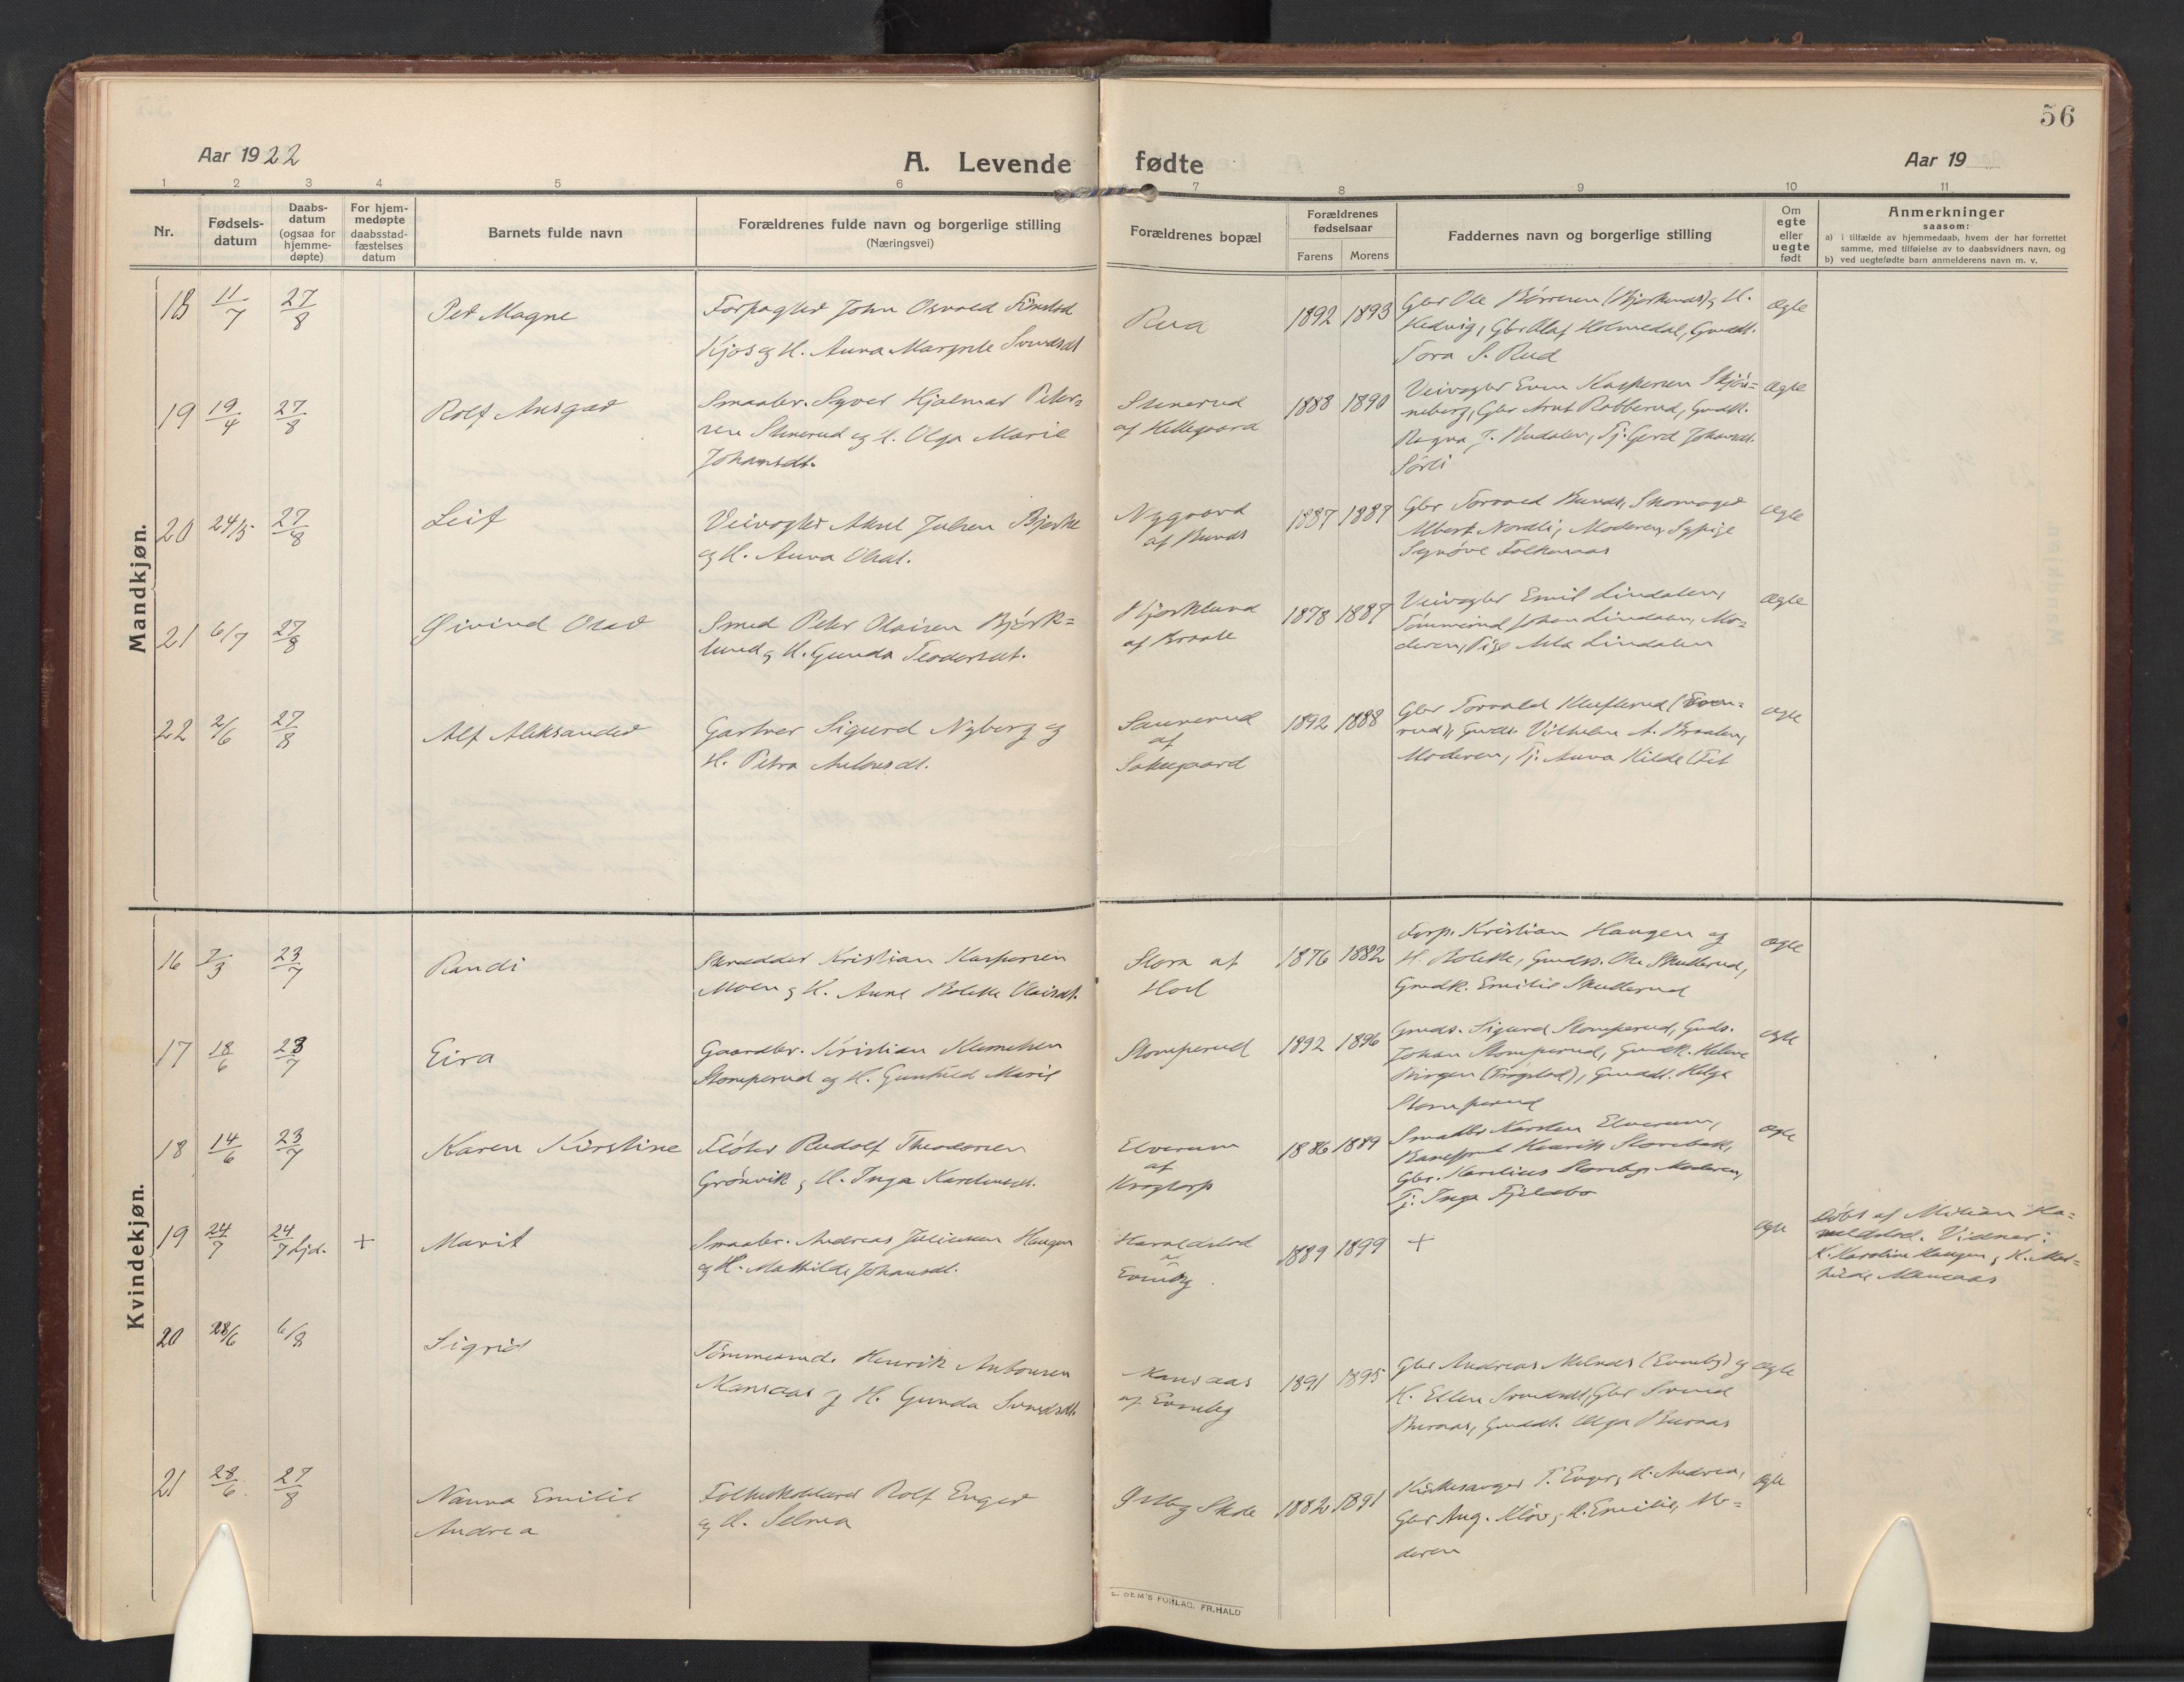 56
Aar 1922
A. Levende fødte
Aar 19
1 2 3 4 5 6 7 8 9 10 11
Nr.
Fødsels-
datum
Daabs-
datum
(ogsaa for
hjemme-
døpte)
For hjem-
medøpte
daabsstad-
fæstelses
datum
Barnets fulde navn
Forældrenes fulde navn og borgerlige stilling
(Næringsvei)
Forældrenes bopæl
Forældrenes
fødselsaar
Farens Morens
Faddernes navn og borgerlige stilling
Om
egte
eller
uegte
født
Anmerkninger
saasom:
a) i tilfælde av hjemmedaab, hvem der har forrettet
samme, med tilføielse av to daabsvidners navn, og
b) ved uegtefødte barn anmelderens navn m. v.
Mandkjøn.
18 11/7 27/8
Per Magne
Forpagter John Osvald
Kjos og H. Anna Margrete
Rua
1892 1893
Gbr Ole (Bjerknds) og H.
Hedvig, Gbr Olaf Holmedal, Gmdt.
Tora S. Rud
Ægte
19 19/4 27/8
Rolf Ansgar
Smaabr. Syver Hjalmar Peter-
sen Stenerud og H. Olga Marie
Johansdt.
Stenerud
af Hellegaard
1888 1890
Veivogter Even Kaspersen Skjøn-
neberg, Gbr Arnt Rabberud, Gmdt.
Ragna J. Budalen, Tj. Gerd Johansdt.
Sørli
Ægte
20 24/5 27/8
Leif
Veivogter Julsen Bjerke
og H. Anna Olsdt.
Nygaard
af Bunds
1887 1887
Gbr Torvald Bunds, Skomager
Albert Nordli, Moderen, Sypige
Synöve
Ægte
21 6/7 27/8
Øivind Olav
Smed Peter Olaisen Björk-
lund og H. Gunda Teodorsdt.
Bjørklund
af Braate
1878 1887
Veivogter Emil Lindalen,
Tömmermd Johan Lindalen, Mo-
deren, Pige Lindalen
Ægte
22 2/6 27/8
Alf Aleksander
Gartner Sigurd Nyberg og
H. Petra
af
1892 1888
Gbr Torvald Klufterud (Even-
rud), Gmdt. Vilhelm A. Braaten,
Moderen, Tj. Anna Kilde
Ægte
Kvindekjøn.
16 7/3 23/7
Randi
Skrædder Kristian Kaspersen
Moen og H. Anne Bolette Olaisdt.
Stora af
Hol
1876 1882
Forp. Kristian Haugen og
H. Bolette, Gmds. Ole Skullerud,
Gmdk. Emilie Skullerud
Ægte
17 18/6 23/7
Eira
Gaardbr. Kristian Klemetsen
Stomperud og H. Gunhild Marie
Stomperud
1892 1896
Gmds. Sigurd Stomperud, Gmds.
Johan Stomperud, Gmdk. Helene
(Trøgstad), Gmdt. Helga
Stomperud
Ægte
18 14/6 23/7
Karen Kirstine
Fløter Rudolf Theodorsen
Grönvik og H. Inga
Elverum
af
Krogtorp
1886 1889
Smaabr Karsten Elverum,
Henrik Storebak,
Gbr. Karelius Moderen,
Tj. Inga Fjeldbo
Ægte
19 24/7 24/7 hjd. +
Marit
Smaabr. Andreas Juliussen Haugen
og H. Mathilde Johansdt.
Haraldstad
af
Evenby
1889 1899
+
Ægte
Døbt af Milian Ha-
raldstad. Vidner:
K. Karoline Haugen og K. Mat-
hilde Mansaas
20 28/6 6/8
Sigrid
Tömmermd. Henrik Antonsen
Mansaas og H. Gunda Svendsdt.
Mansaas
af Evenby
1891 1895
Gbr Andreas (Evenby) og
H. Ellen Svendsdt, Gbr Svend
Buraas, Gmdt. Olga Buraas
Ægte
21 28/6 27/8
Nanna Emilie
Andrea
Folkeskolelærer Rolf Enger
og H. Selma
Ørtby Skole
1882 1891
Kirkesanger T. Enger, H. Andrea,
Gbr Aug. Kløv og H. Emilie, Mo-
deren
Ægte
SEM'S FORLAG, FR.HALD